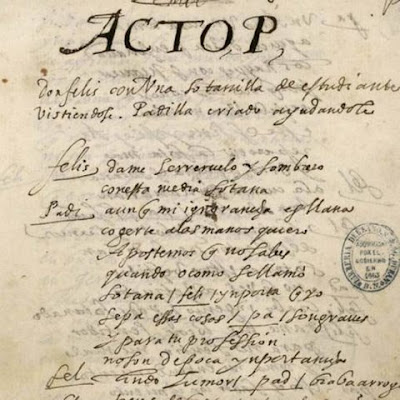 ACTO P,
Don felis con Una sotanilla de estudiante
vistiendose. Padilla criado ayudandole
felis dame ferreruelo y sombrero
con esta media sotana
Padi aunq mi ignorancia es llana
cogerte a las manos quiero
Apostemos q no sabes
quando o como se llamo
sotana / feli / ynporta q yo
sepa esas cosas / pa / son graves
y para tu profession
no son de poca ynportancia
fel / pad /